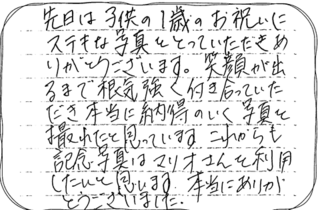 先日は子供の1歳のお祝いに
ステキな写真をとっていただきあ
りがとうございます。笑顔が出
るまで根気強く付き合っていた
だき本当に納得のいく写真を
撮れたと思っています これからも
記念写真はマリオさんを利用
したいと思います 本当にありが
とうございました.